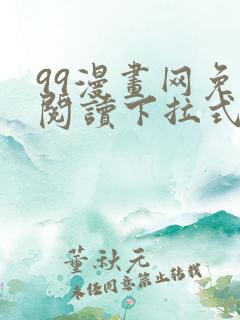 99漫畫网免
閱讀下拉式
董秋元
未任同意禁止转载